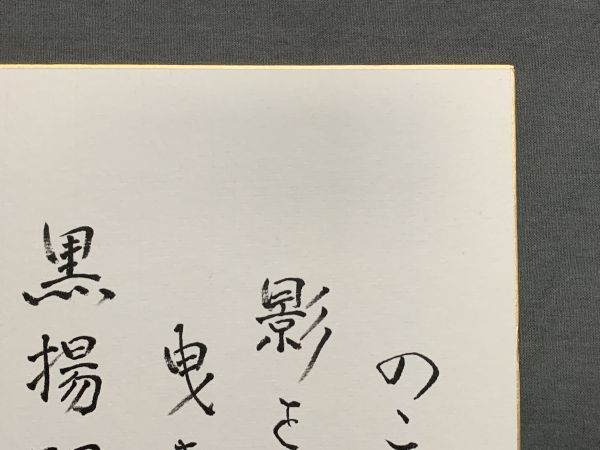 のこ
影を
曳き
黒揚